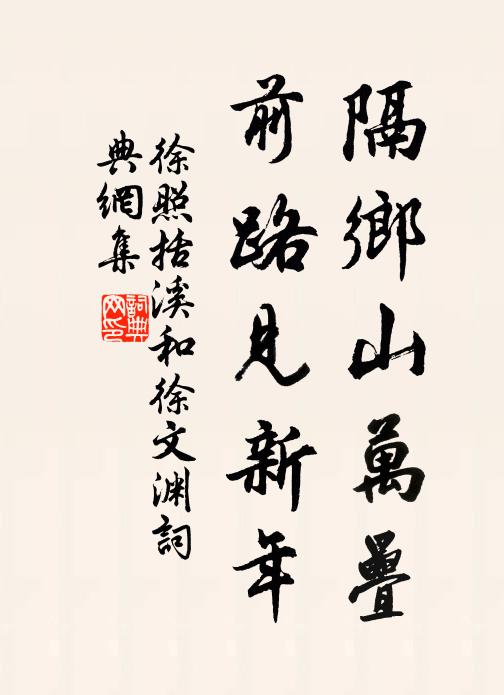 隔鄉山萬疊
前路見新年
徐照括溪和徐文渊詞
典網集
詞典
网印